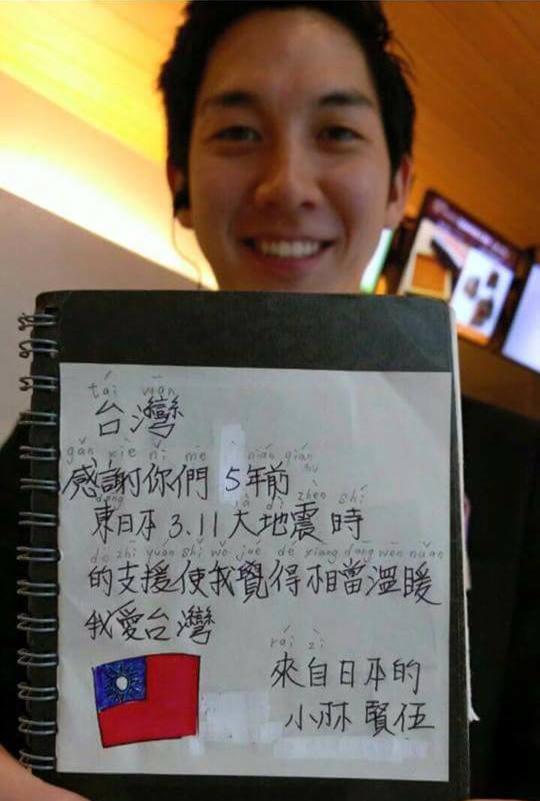 tái wān
台灣
gǎn xiè nǐ me nián qián
感謝你們 5年前
dong dà dì zhèn shí
東日本 3.11 大地震時
de zhī yuán shǐ wǒ jué de xiāng dāng wēn nuǎn
的支援使我覺得相當溫暖
我愛台灣
rái zì
來自日本的
小林 賢伍